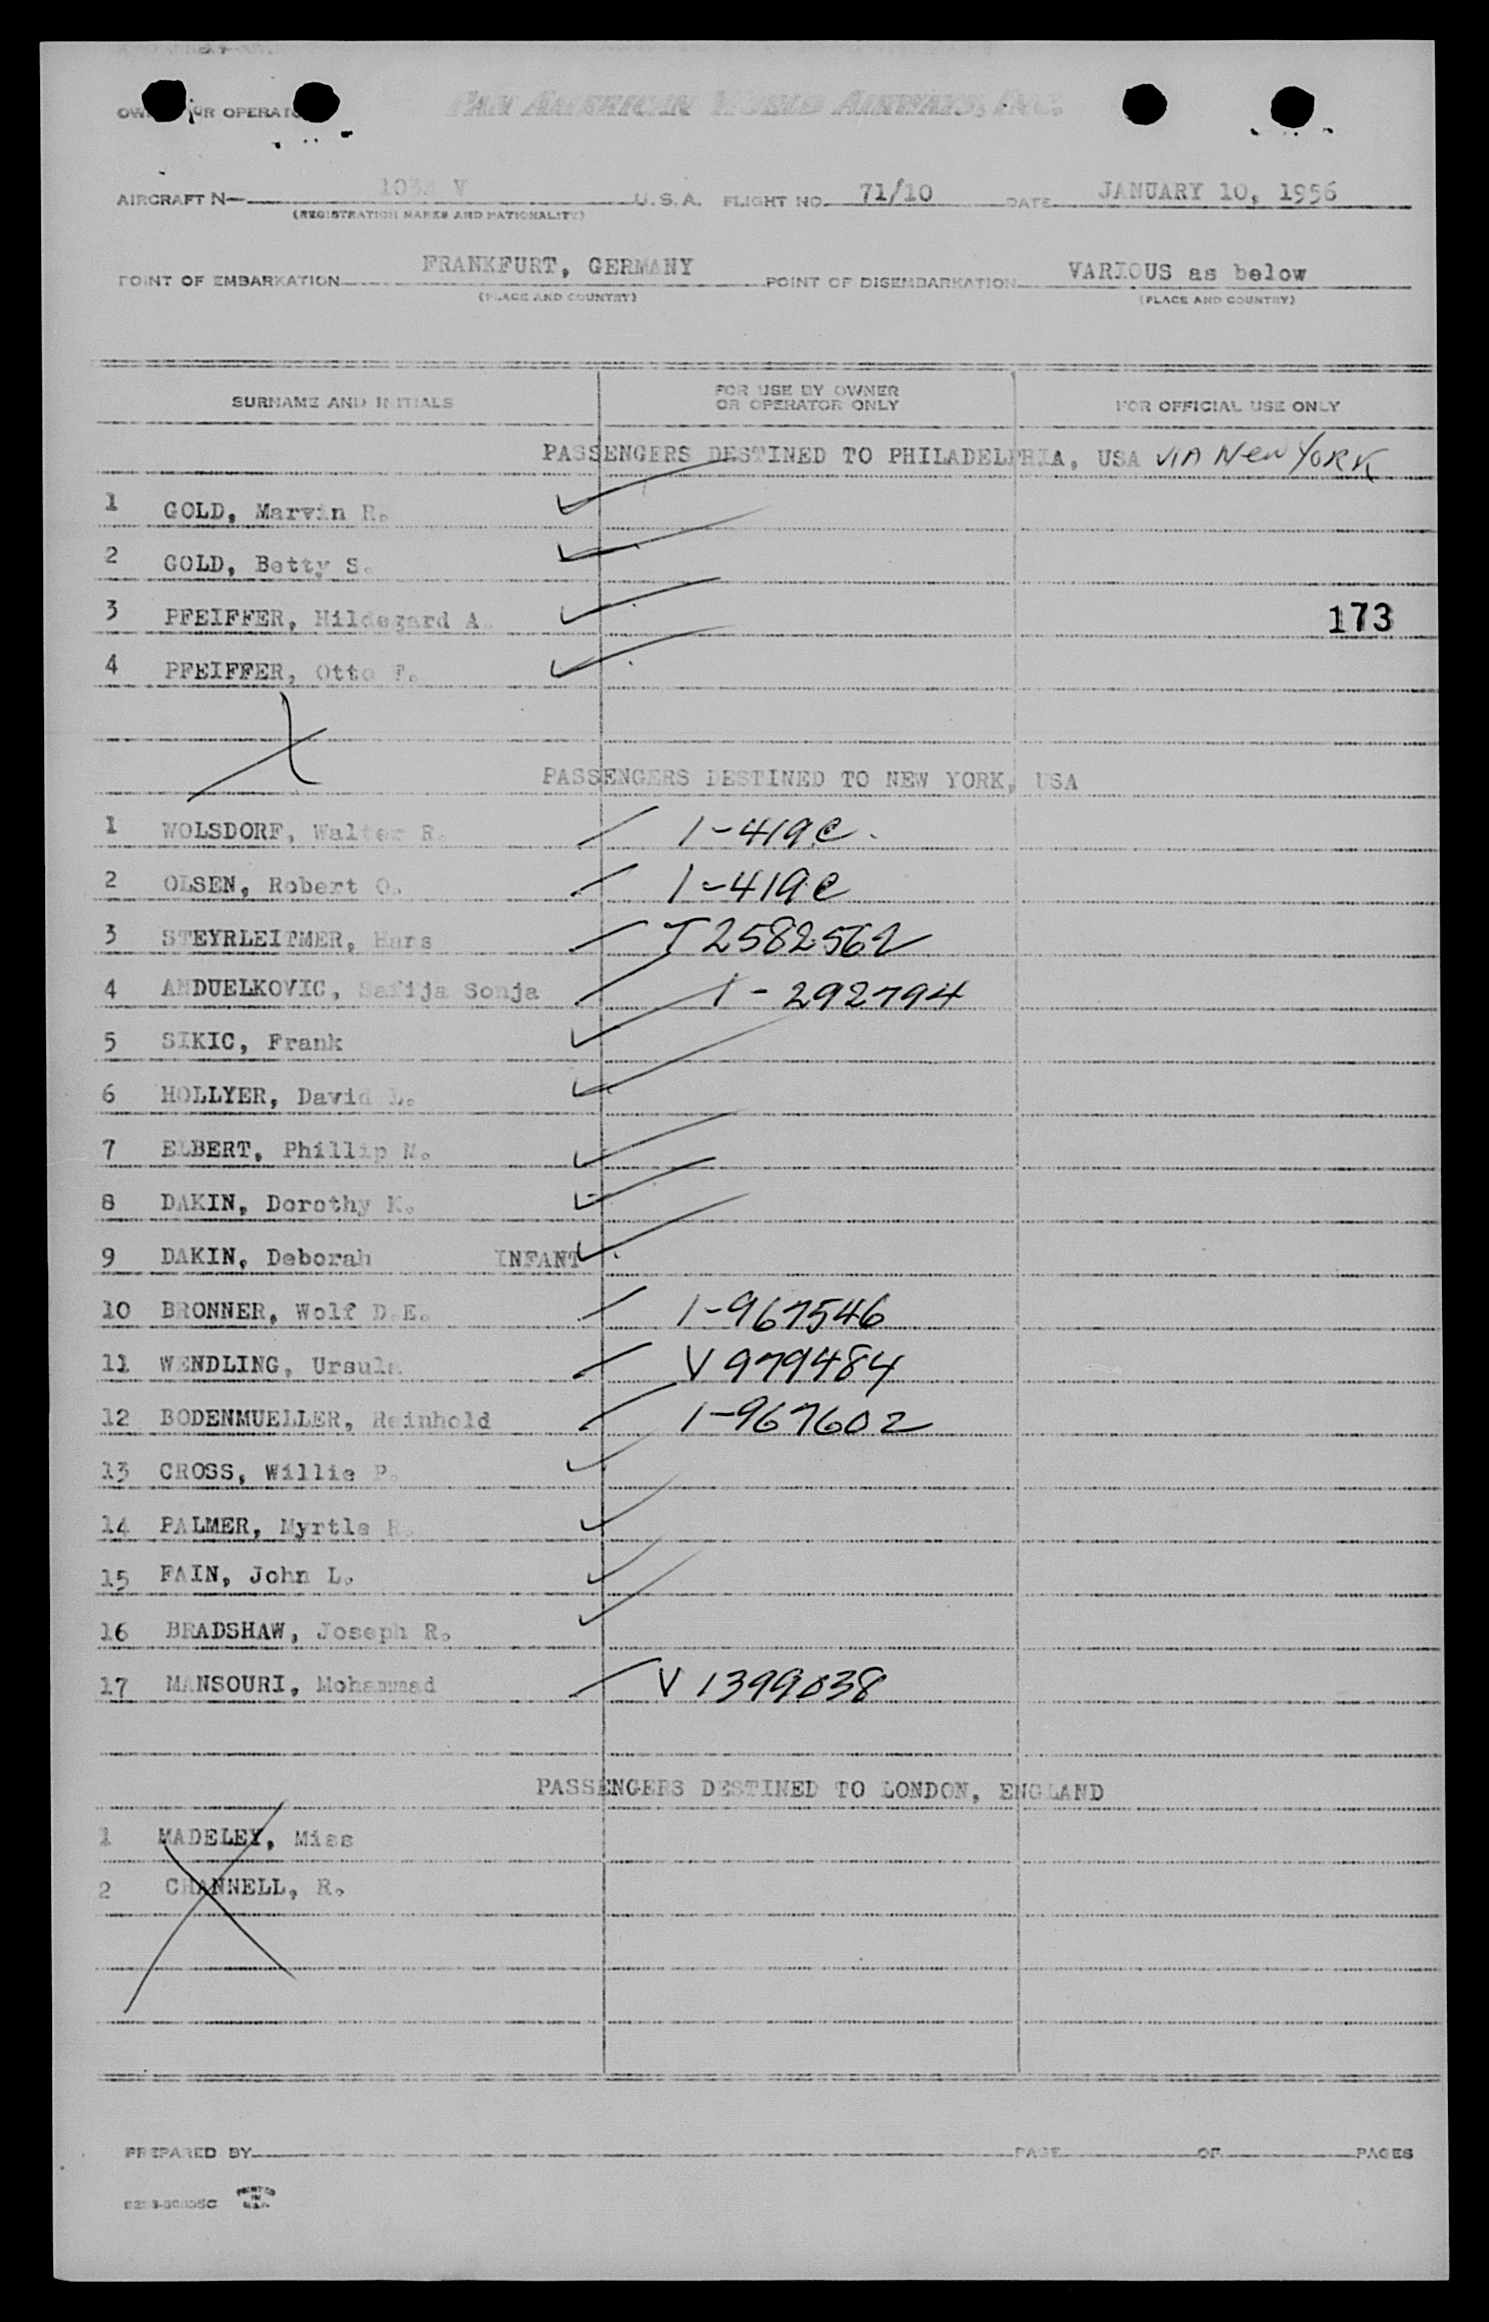 OWNER OR OPERATOR PAN AMERICAN WORLD AIRWAYS, INC.
AIRCRAFT N— V U.S.A. FLIGHT NO. 71/10 DATE JANUARY 10, 1956
(REGISTRATION MARKS AND NATIONALITY)
POINT OF EMBARKATION FRANKFURT, GERMANY POINT OF DISEMBARKATION VARIOUS as below
(PLACE AND COUNTRY) (PLACE AND COUNTRY)
SURNAME AND INITIALS FOR USE BY OWNER OR OPERATOR ONLY FOR OFFICIAL USE ONLY
PASSENGERS DESTINED TO PHILADELPHIA, USA VIA New YORK
1 GOLD, Marvin R.
2 GOLD, Betty S.
3 PFEIFFER, Hildegard A. 173
4 PFEIFFER, Otto F.
PASSENGERS DESTINED TO NEW YORK, USA
1 WOLSDORF, Walter R. 1-419C
2 OLSEN, Robert O. 1-419C
3 STEYRLEITMER, Hans T2582562
4 ANDUELKOVIC, Safija Sonja 1-292794
5 SIKIC, Frank
6 HOLLYER, David L.
7 ELBERT, Phillip M.
8 DAKIN, Dorothy K.
9 DAKIN, Deborah INFANT
10 BRONNER, Wolf D.E. 1-967546
11 WENDLING, Ursula V979484
12 BODENMUELLER, Reinhold 1-967602
13 CROSS, Willie P.
14 PALMER, Myrtle R.
15 FAIN, John L.
16 BRADSHAW, Joseph R.
17 MANSOURI, Mohammad V 1399038
PASSENGERS DESTINED TO LONDON, ENGLAND
1 MADELEY, Miss
2 CHANNELL, R.
PREPARED BY PAGE OF PAGES
PRINTED IN U.S.A.